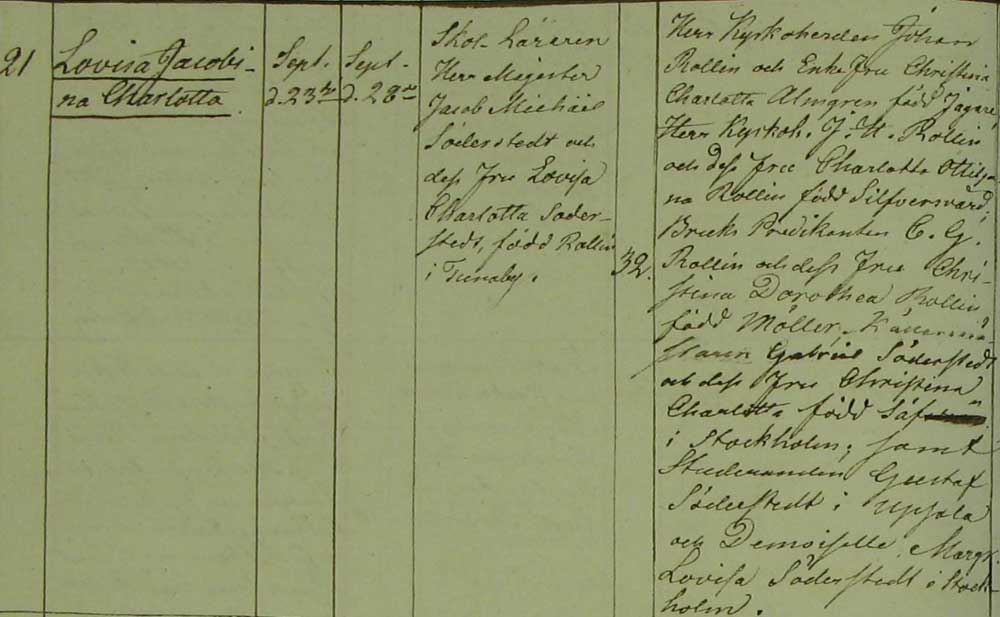 21
Lovisa Jacobi-
na Charlotta
Sept.
d. 23
Sept.
d. 28
Skol-Läraren
Herr Magister
Jacob Michäel
Söderstedt och
dess Fru Lovisa
Charlotta Söder-
stedt, född Rollin
i Tunaby.
32.
Herr Kyrkoherden Johan
Rollin och Enke Fru Christina
Charlotta Almgren född Jägare,
Herr Kyrkoh. J. U. Rollin
och dess Fru Charlotta Ottilia
na Rollin född Silfversvärd,
Bruks Predikanten C. G.
Rollin och dess Fru Chri-
stina Dorothea Rollin
född Möller,
staren Gabriel Söderstedt
och dess Fru Christina
Charlotta född
i Stockholm; samt
Studeranden Gustaf
Söderstedt i Upsala
och Demoiselle Margr.
Lovisa Söderstedt i Stock-
holm.